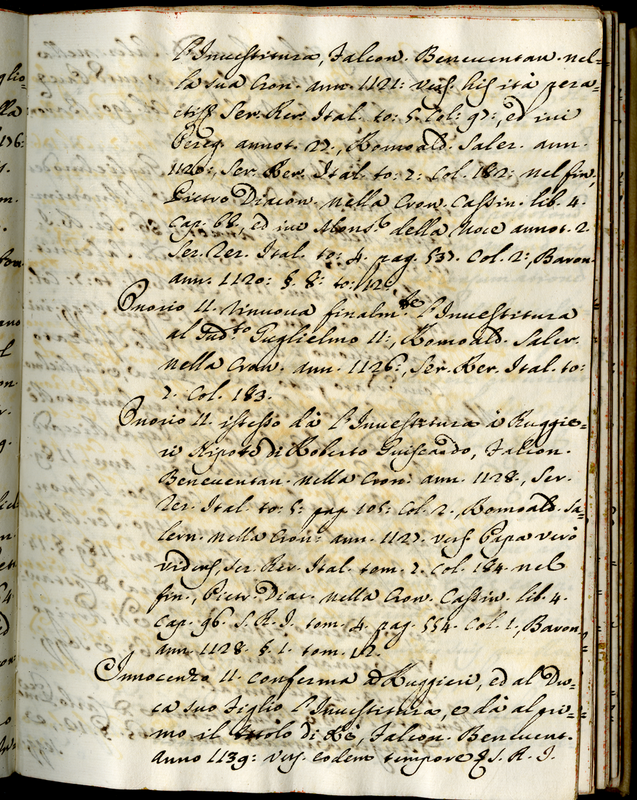 l'Inuestitura, Falcon. Beneuentan. nel-
la sua Cron. ann. 1121: vers. his ità pera-
ctis Ser. Rer. Ital. to: 5. Col: 97:, ed iui
Pereg. annot. 27., Romoald. Saler. ann.
1120:, Ser. Rer. Ital. to: 7: Col. 182: nel fin,
Pietro Diacon. nella Cron. Cassin. lib. 4.
Cap: 68., ed iue Mons.r della Noce annot. 2.
Ser. Rer. Ital. to: 4. pag. 537. Col. 2:, Baron.
ann. 1120: §. 8: to: 12:
Onorio II. rinuoua finalm.te l'Inuestitura
al sud.to Guglielmo II:, Romoald. Saler.
nella Cron. ann. 1126:, Ser. Rer. Ital. to:
7. Col. 183.
Onorio II. istesso dà l'Inuestitura à Ruggie-
ri Nipote di Roberto Guiscardo, Falcon.
Beneuentan. nella Cron: ann. 1128., Ser.
Rer. Ital. to: 5: pag 105: Col. 2., Romoald. Sa-
lern. nella Cron: ann. 1127. vers. Papa verò
videns, Ser. Rer. Ital. tom. 7. Col. 184. nel
fin., Pietr. Diac. nella Cron. Cassin. lib. 4.
Cap. 96. S. R. I. tom. 4. pag. 554. Col. 1., Baron.
ann. 1128. §. 1. tom. 12.
Innocenzo II. conferma à Ruggieri, ed al Du-
ca suo Figlio l'Inuestitura, e dà al pri-
mo il titolo di Rè, Falcon. Beneuent.
anno 1139: vers. eodem tempore S. R. I.